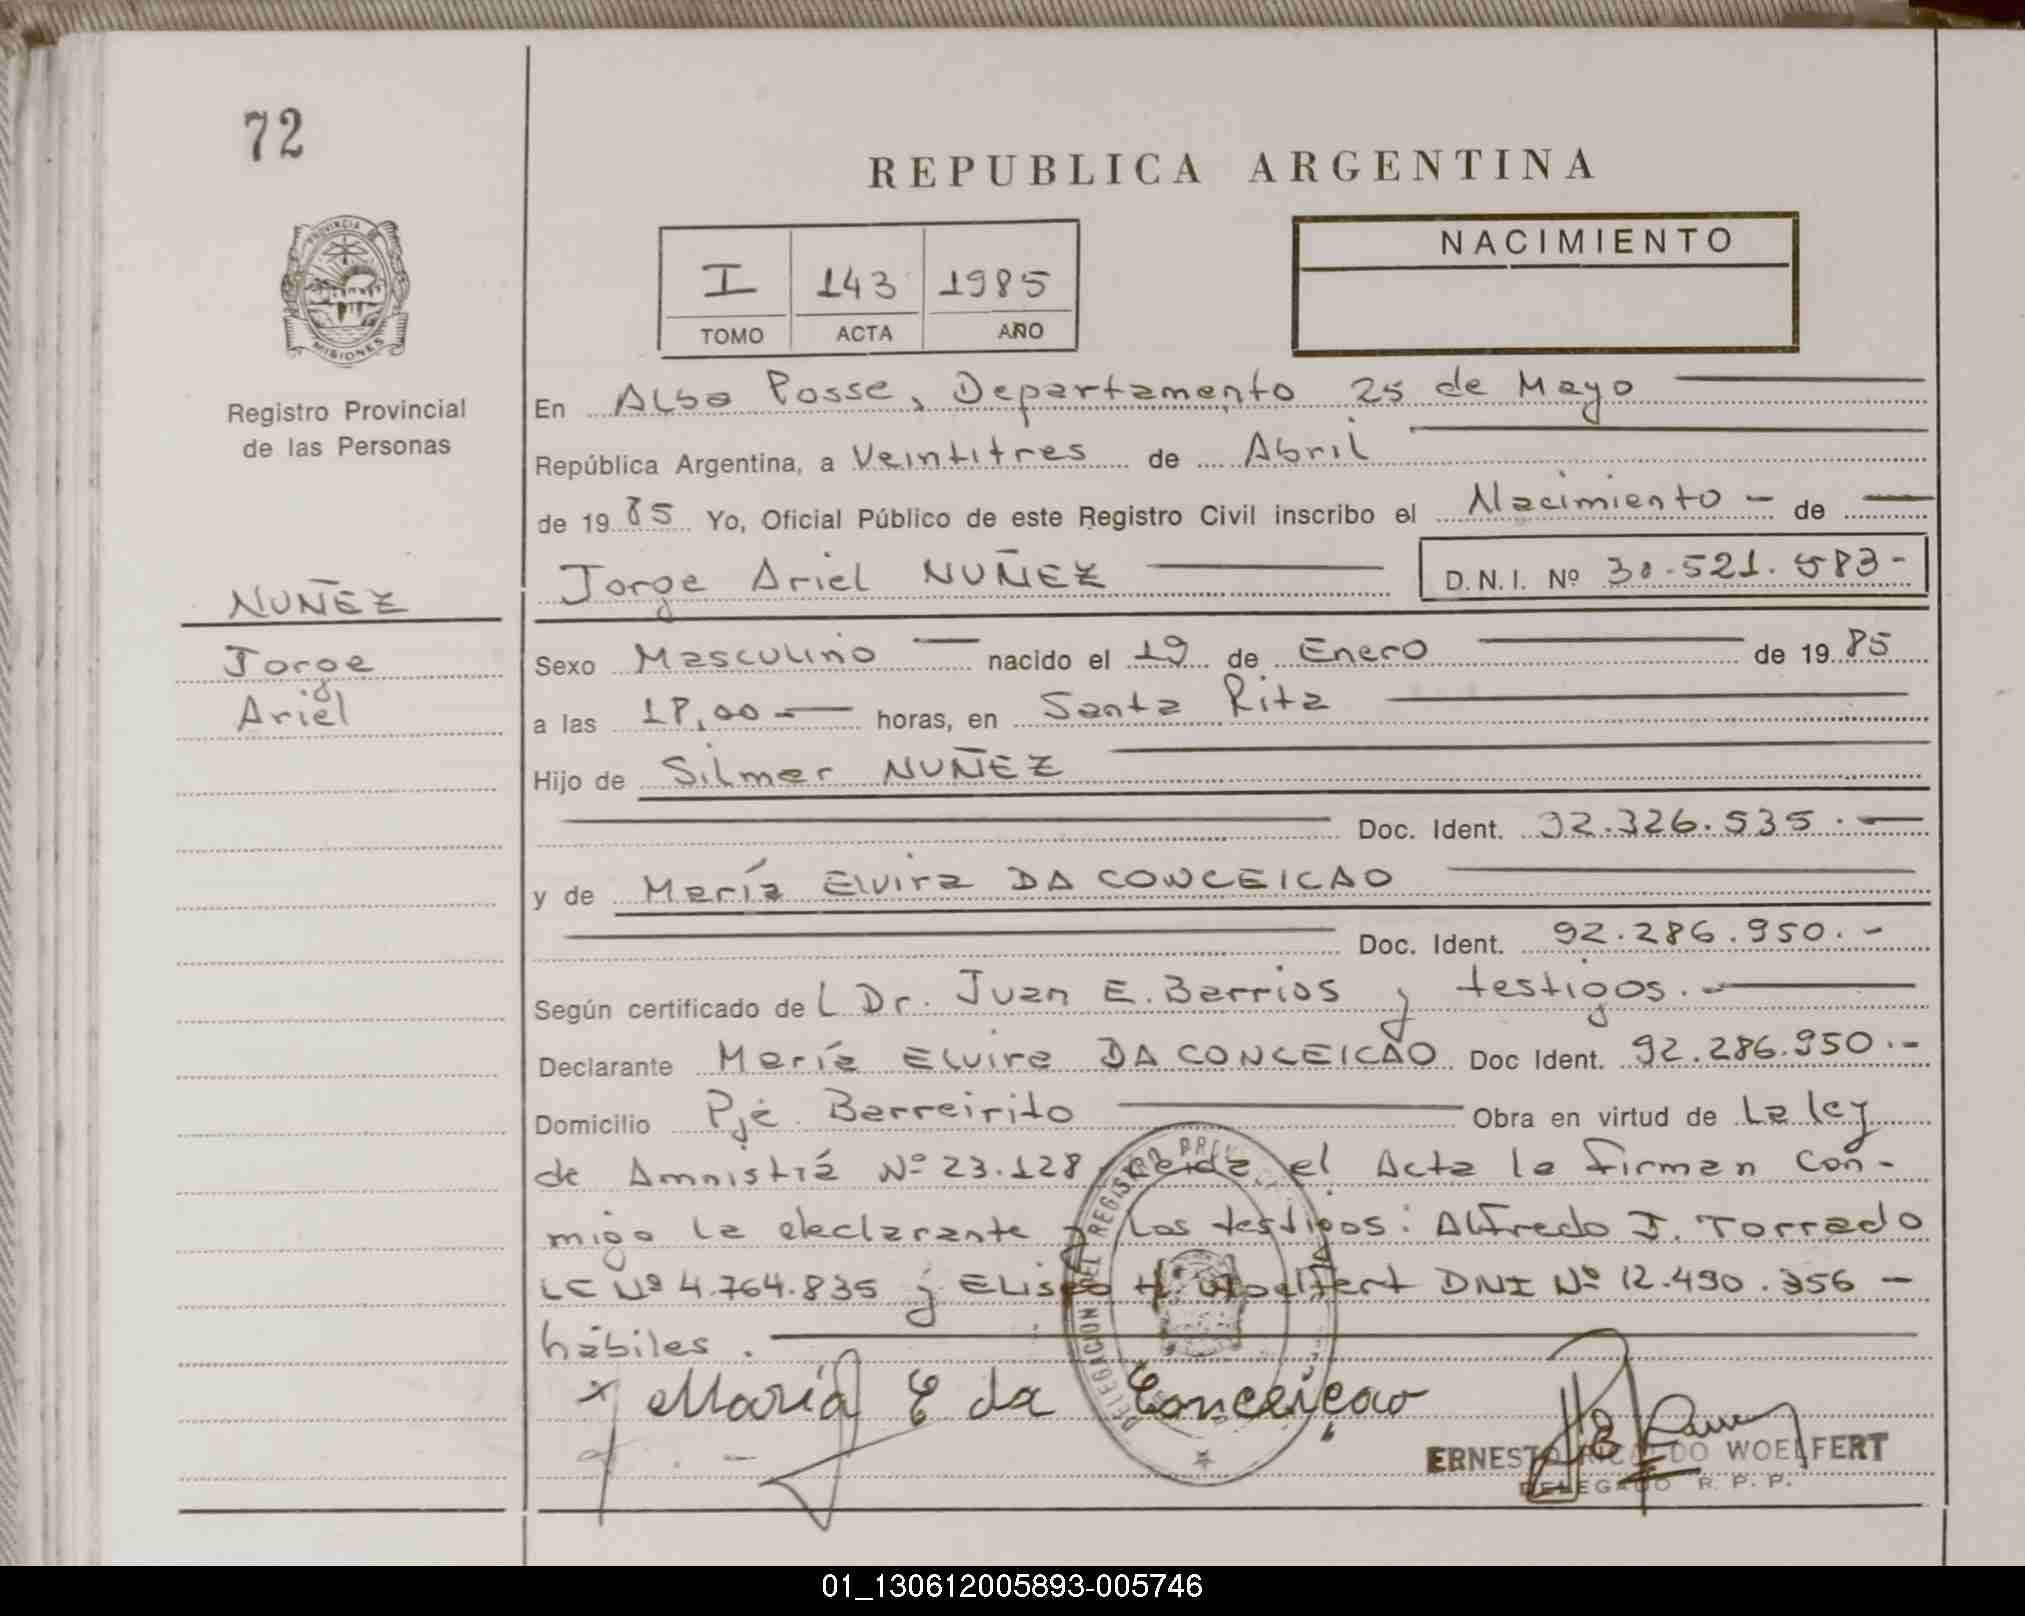 72
REPUBLICA ARGENTINA
PROVINCIA
MISIONES
I 143 1985
TOMO ACTA AÑO
NACIMIENTO
Registro Provincial
de las Personas
En Alba Posse, Departamento 25 de Mayo
República Argentina, a Veintitres de Abril
de 19 85 Yo, Oficial Público de este Registro Civil inscribo el Nacimiento - de
Jorge Ariel NUÑEZ D.N.I. Nº 30.521.583-
NUÑEZ
Jorge
Ariel
Sexo Masculino nacido el 19 de Enero de 19 85
a las 18,00 horas, en Santa Rita
Hijo de Silmar NUÑEZ
Doc. Ident. 92.326.535.-
y de María Elvira DA CONCEICAO
Doc. Ident. 92.286.950.-
Según certificado del Dr. Juan E. Barrios y testigos.-
Declarante María Elvira DA CONCEICAO Doc Ident. 92.286.950.-
Domicilio Pje. Barreirito Obra en virtud de La ley
de Amnistiá Nº 23.128 Leida el Acta la firman con-
migo la declarante y los testigos: Alfredo J. Torrado
LE Nº 4.764.835 y Eliseo H. Woelfert DNI Nº 12.490.356 -
hábiles.
x María E da Conceiçao
DELEGACION DEL REGISTRO
ERNESTO RICARDO WOELFERT
DELEGADO R. P. P.
01_130612005893-005746